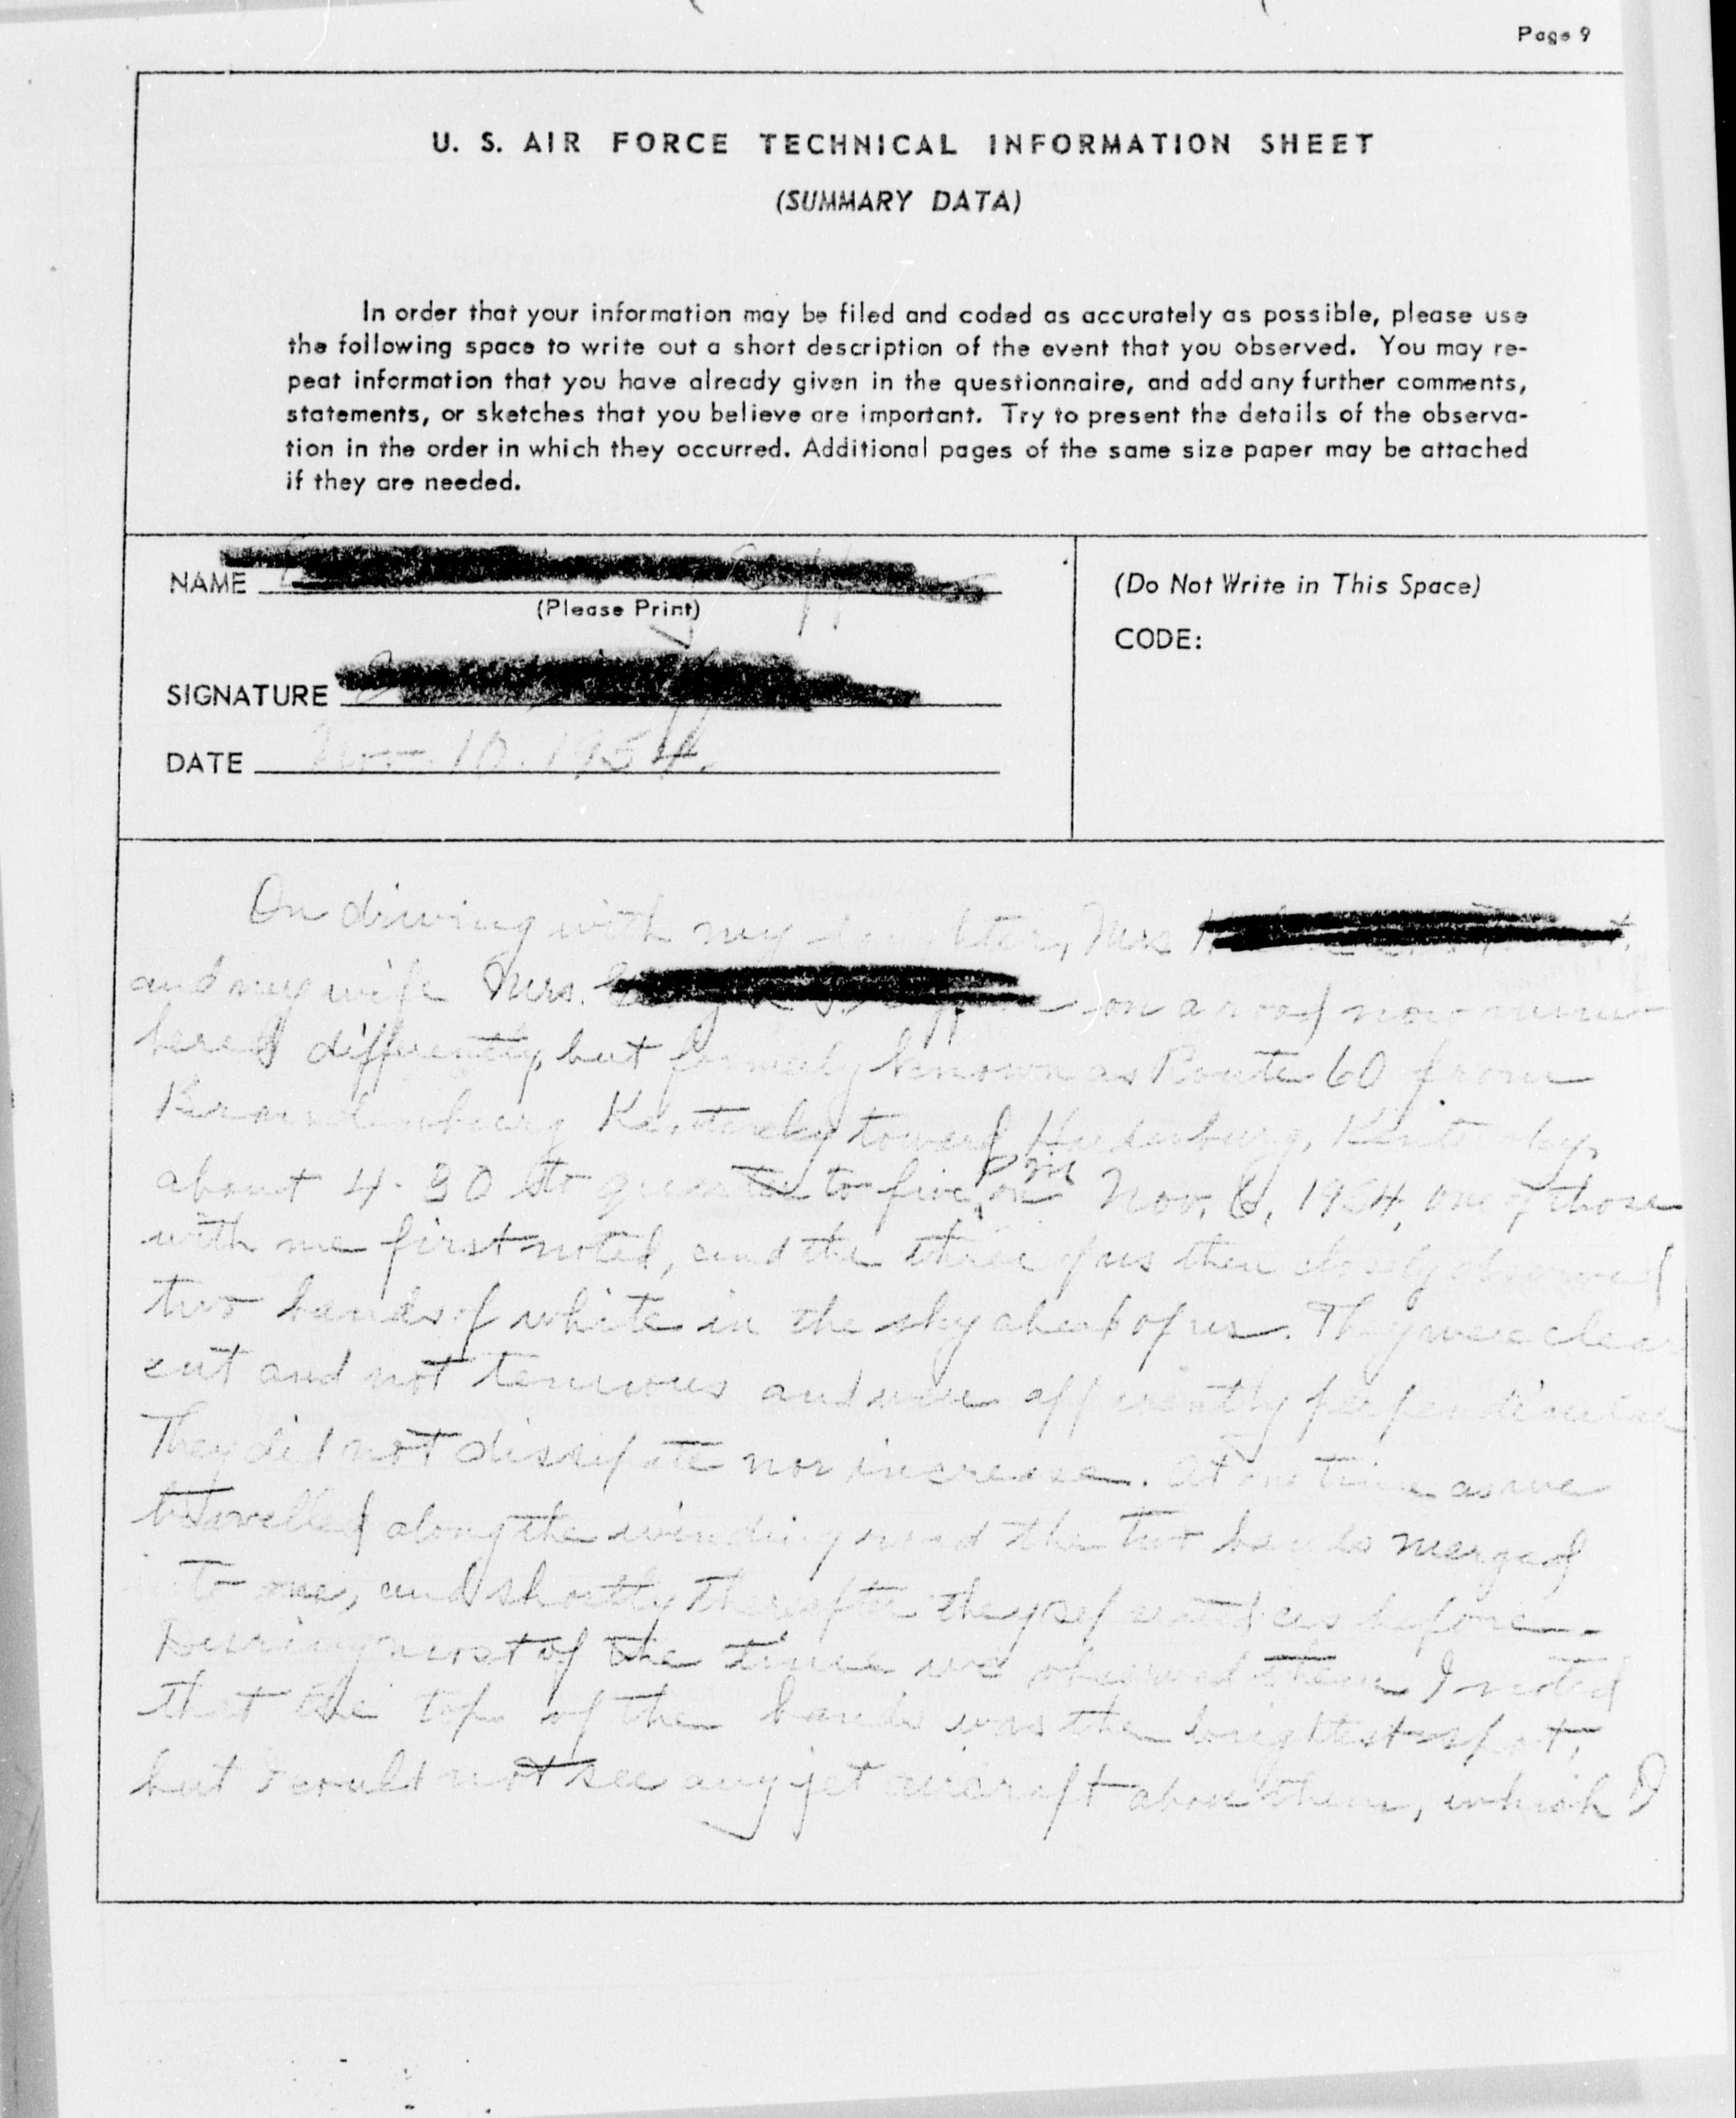 Page 9
U. S. AIR FORCE TECHNICAL INFORMATION SHEET
(SUMMARY DATA)
In order that your information may be filed and coded as accurately as possible, please use
the following space to write out a short description of the event that you observed. You may re-
peat information that you have already given in the questionnaire, and add any further comments,
statements, or sketches that you believe are important. Try to present the details of the observa-
tion in the order in which they occurred. Additional pages of the same size paper may be attached
if they are needed.
NAME
(Please Print)
SIGNATURE
DATE Nov. 10. 1954.
(Do Not Write in This Space)
CODE:
On driving with my daughter, Mrs
and my wife Mrs. on a road now num-
bered differently, but formerly known as Route 60 from
Brandenburg Kentucky toward Hardensburg, Kentucky,
about 4-30 to quarter to five, PM on Nov. 6, 1954, one of those
with me first noted, and the three of us then closely observed
two bands of white in the sky ahead of us. They were clear
cut and not tenuous and were apparently perpendicular
They did not dissipate nor increase. At one time as we
travelled along the winding road the two bands merged
to one, and shortly thereafter they separated as before.
During most of the time we observed them I noted
that the top of the bands was the brightest spot,
but I could not see any jet aircraft above them, which I